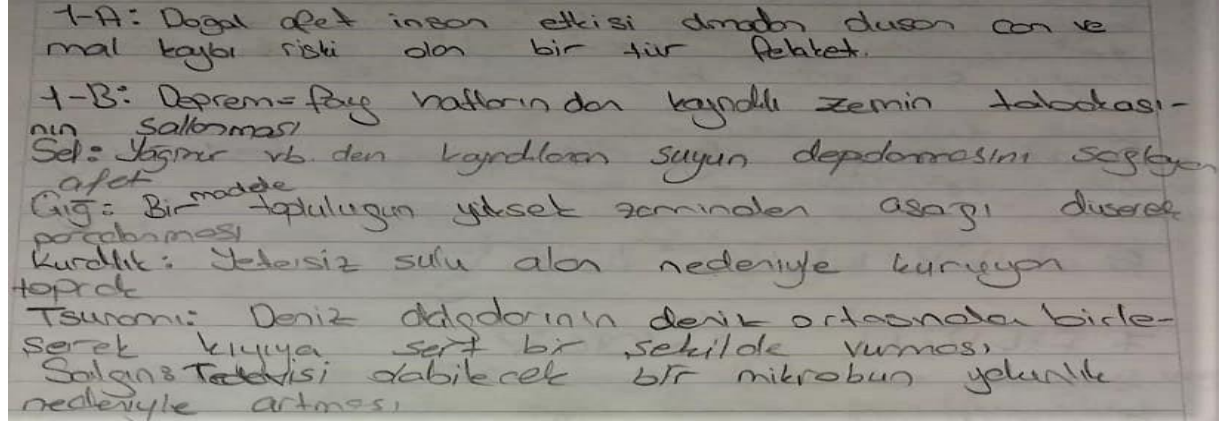 1-A: Dogal afet insan etkisi olmadan olusan can ve
mal kaybı riski olan bir tür felaket.
1-B: Deprem= fay hatlarından kaynaklı zemin tabakası-
nın sallanması
Sel= Yağmur vb. den kaynaklanan suyun depolanmasını sağlayan
afet
Çığ= Bir madde toplulugun yüksek zeminden asagı düserek
parçalanması
Kuraklık: Yetersiz sulu alan nedeniyle kuruyan
toprak
Tsunami: Deniz dalgalarının deniz ortasında birle-
serek kıyıya sert bir sekilde vurması
Salgın: Tedavisi olabilecek bir mikrobun yakınlık
nedeniyle artması